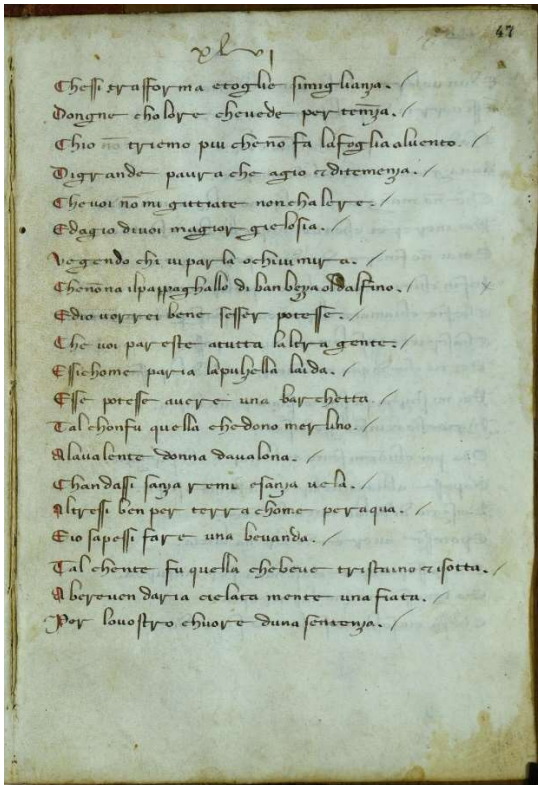 47
xlvi
Chessi trasforma etoglie simiglianza. /
Dongne cholore chevede per tenza. /
Chio nō triemo piu che nō fa lafoglia alvento. /
Digrande paura che agio & ditemenza. /
Che voi nō mi gittiate nonchalere. /
Edagio divoi magior gielosia. /
Vegendo chi vi parla ochivi mira. /
Chenōna ilpappaghallo di banbeza o dalfino. /
Edio vorrei bene sesser potesse. /
Che voi pareste atutta laltra gente. /
Essichome paria lapulzella laida. /
Esse potesse avere una barchetta /
Tal chonfu quella chedono merlino. /
Alavalente donna davalona. /
Chandassi sanza remi esanza vela. /
Altressi ben per terra chome peraqua. /
Eio sapessi fare una bevanda. /
Tal chente fu quella chebeve tristaino & isotta. /
Abereven daria cielata mente una fiata. /
Per lovostro chuore duna sentenza. /